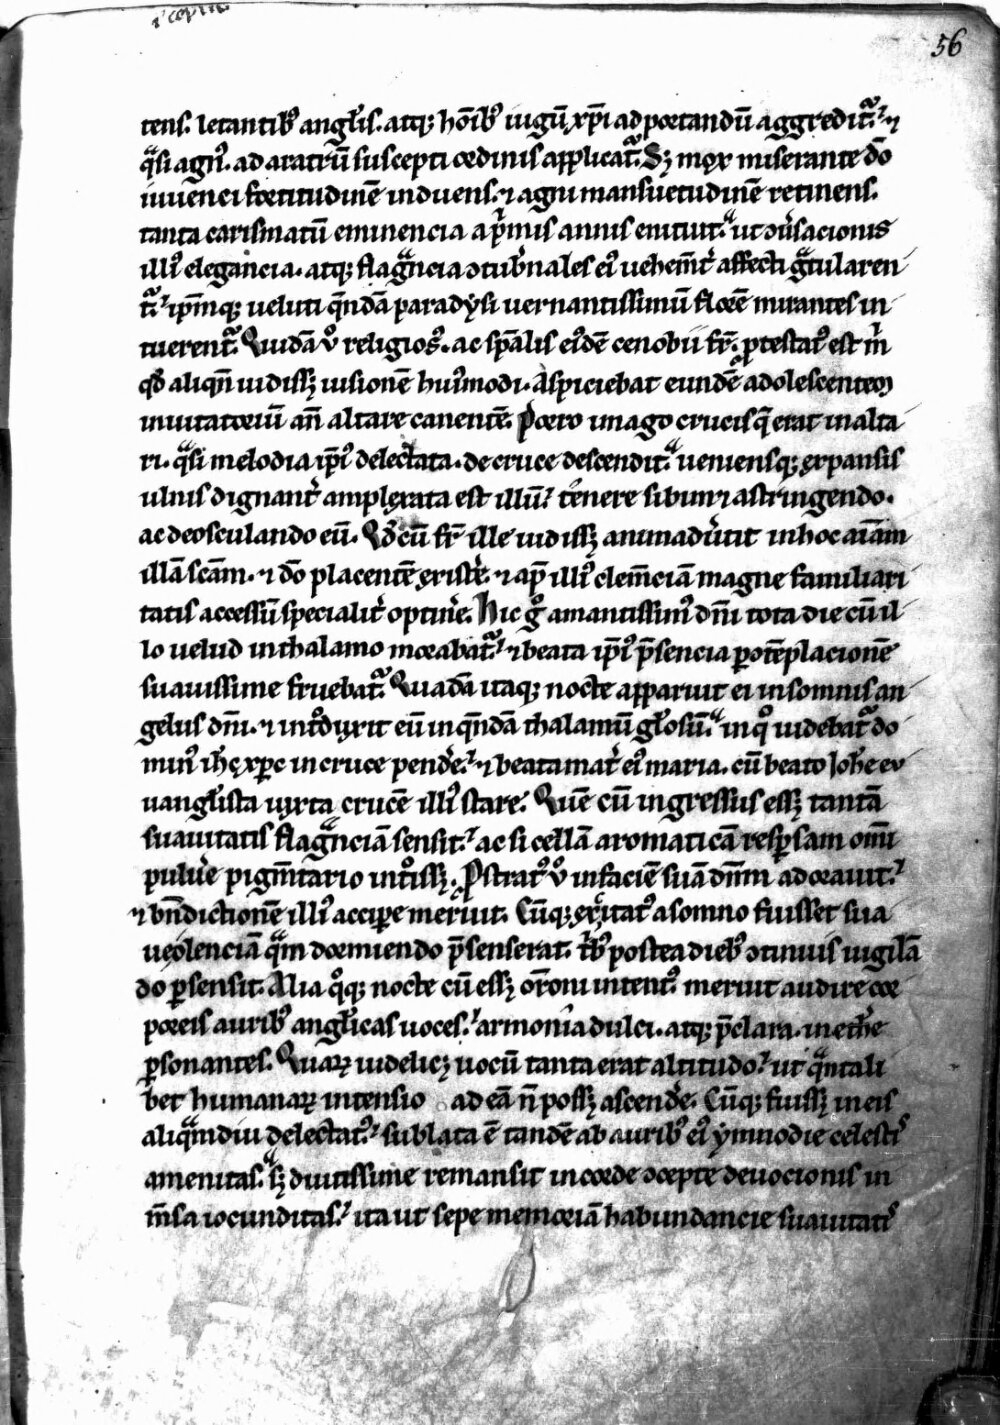 56
tens. letantibꝰ angl̄is. atqꝫ hōibꝰ iugū xp̄i ad portandū aggreditᷓ. ⁊
qᷓsi agnꝰ. ad aratrū suscepti ordinis applicatᷓ. Sꝫ mox miserante dō
iuuenci fortitudinē induens. ⁊ agni mansuetudinē retinens.
tanta carismatū eminencia a pͥmis annis enituit. ut ꝯuͥsacionis
illiꝰ elegancia. atqꝫ flagᷓncia ꝯtub̄nales eiꝰ uehem̄t̓ affecti gᷓtularen
tᷓ. ip̄mqꝫ ueluti qn̄dā paradysi uernantissimū florē mirantes in
tuerentᷓ. Quidā uͦ religiosꝰ. ac sp̄alis eiꝰdē cenobii fr̄. ꝓtestatꝰ est m̅
qd̓ aliqn̄ uidissꝫ uisionē huiꝰmodi. Aspiciebat eundē adolescentem
inuitatoriū an̄ altare canentē. Porro imago crucis q̄ erat in alta
ri. qᷓsi melodia ip̄iꝰ delectata. de cruce descendit. ueniensqꝫ expansis
ulnis dignant̓ amplexata est illū. tenere sibi iūgendo ⁊ astringendo.
ac deosculando eū. Qd̓ cū fr̄ ille uidissꝫ animadu̓tit in hoc aīam
illā sc̄am. ⁊ dō placentē existe̓. ⁊ ap̄ illiꝰ clem̄ciam magne familiari
tatis accessū specialit̓ optine̓. Hic gͦ amantissimꝰ dn̄i tota die cū il
lo uelud in thalamo morabatᷓ. ⁊ beata ip̄iꝰ p̄sencia ꝑ ꝯtēplacionē
suauissime fruebatᷓ. Quadā itaqꝫ nocte apparuit ei in somnis an
gelus dn̄i. ⁊ intͦduxit eū in qn̄dā thalamū gl̓osū. in qͦ uidebatᷓ do
minꝰ ih̄c xp̄c in cruce pende̓. ⁊ beata mat̓ eiꝰ maria. cū beato Joh̄e eu
uangl̓ista iuxta crucē illiꝰ stare. Quē cū ingressus essꝫ tantā
suauitatis flagᷓnciā sensit. ac si cellā aromaticā resꝑsam omī
puluͥe pigm̄tario intͦissꝫ. Prostratꝰ uͦ in faciē suā dn̄m adorauit.
⁊ bn̄dictionē illiꝰ acciꝑe meruit. Cūqꝫ exͥtatꝰ a somno fuisset sua
ueolenciā qᷓm dormiendo p̄senserat. tͥbꝰ postea diebꝰ ꝯtinuis uigilā
do ꝑsensit. Alia qͦqꝫ nocte cū essꝫ or̄oni intentꝰ. meruit audire cor
poreis auribꝰ angl̓icas uoces. armonia dulci. atqꝫ p̄clara. in eth̓e
ꝑsonantes. Quarꝝ uidelicꝫ uocū tanta erat altitudo. ut qᷓntali
bet humanarꝝ intensio ad eā n̄ possꝫ ascende̓. Cūqꝫ fuissꝫ in eis
aliqᷓmdiu delectatꝰ. sublata ē tandē ab auribꝰ eiꝰ ymnodie celestiꝰ
amenitas. sꝫ diutissime remansit in corde ꝯcepte deuocionis in
m̄sa iocunditas. ita ut sepe memoriā habundancie suauitatiꝰ